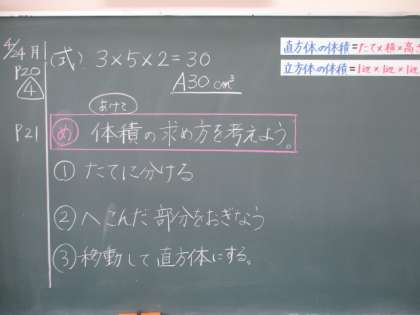 4/24月
P20
4
(式) 3×5×2=30
A30cm³
直方体の体積=たて×横×高さ
立方体の体積=1辺×1辺×1辺
P21
め 体積の求め方を考えよう。
①たてに分ける
②へこんだ部分をおぎなう
③移動して直方体にする。